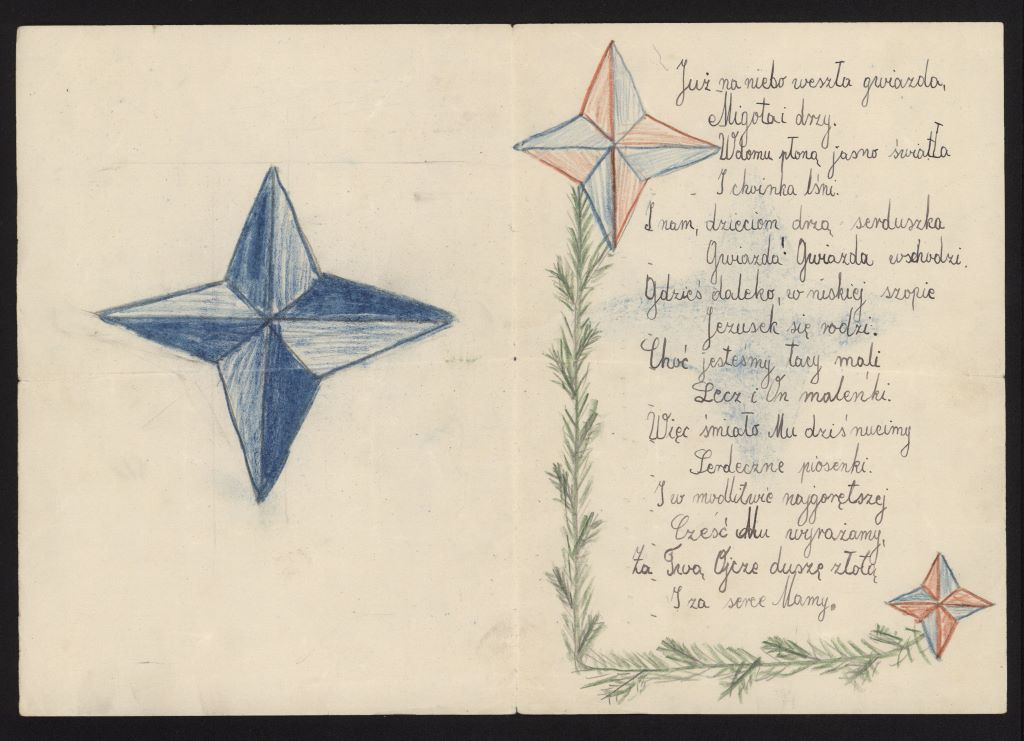 Już na niebo weszła gwiazda,
Migoła i drzy.
W domu płoną jasno światła
I choinka lśni.
I nam, dzieciom drzą serduszka
Gwiazda! Gwiazda wschodzi.
Gdzieś daleko, w niskiej szopie
Jezusek się rodzi.
Choć jesteśmy tacy mali
Lecz i On maleńki.
Więc śmiało Mu dziś nucimy
Serdeczne piosenki.
I w modlitwie najgorętszej
Cześć Mu wyrażamy,
Za Twą Ojcze duszę złotą
I za serce Mamy.